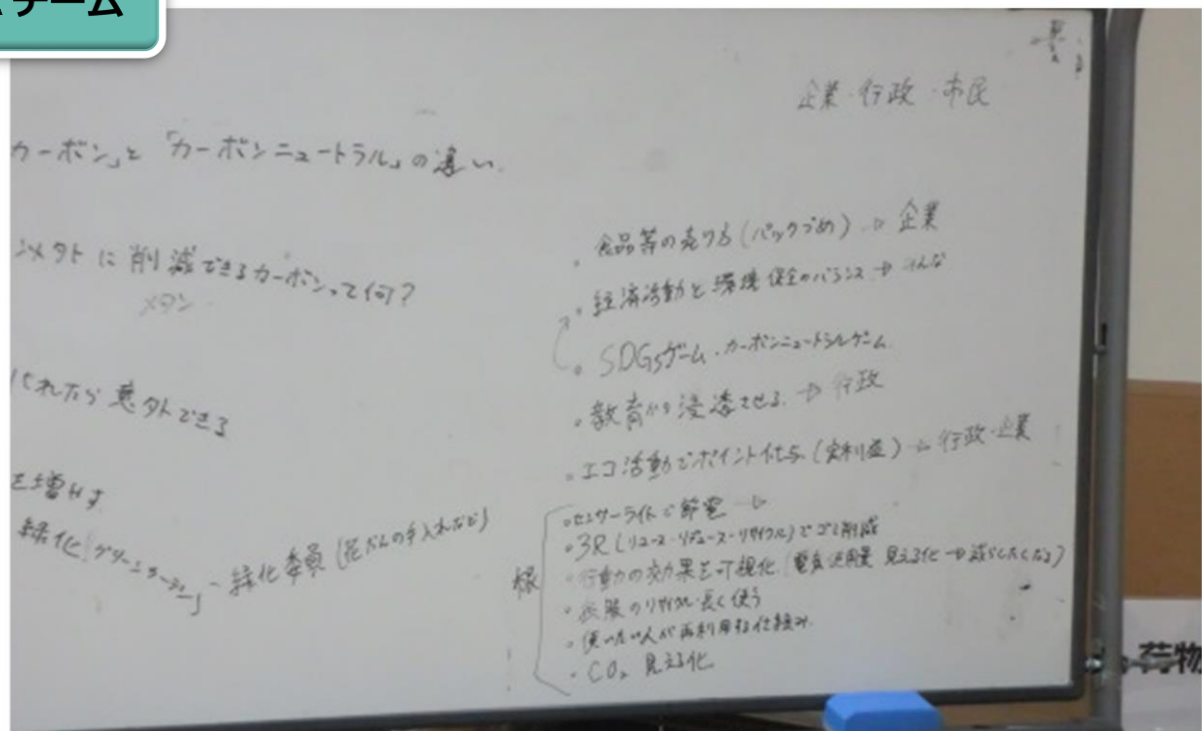 チーム
企業・行政・市民
カーボン」と「カーボンニュートラル」の違い
以外に削減できるカーボンって何?
メタン
たら意外できる
を増やす
緑化「グリーンカーテン」・緑化委員(花だんの手入れなど)
・食品等の売り方(パックづめ)→企業
・経済活動と環境保全のバランス→みんな
・SDGsゲーム・カーボンニュートラルゲーム
・教育から浸透させる→行政
・エコ活動でポイント付与(実利益)→行政・企業
・センサーライトで節電→
・3R(リユース・リデュース・リサイクル)でゴミ削減
・行動の効果を可視化(電気使用量 見える化→減らしたくなる)
・衣服のリサイクル・長く使う
・使いたい人が再利用する仕組み
・CO₂ 見える化
荷物